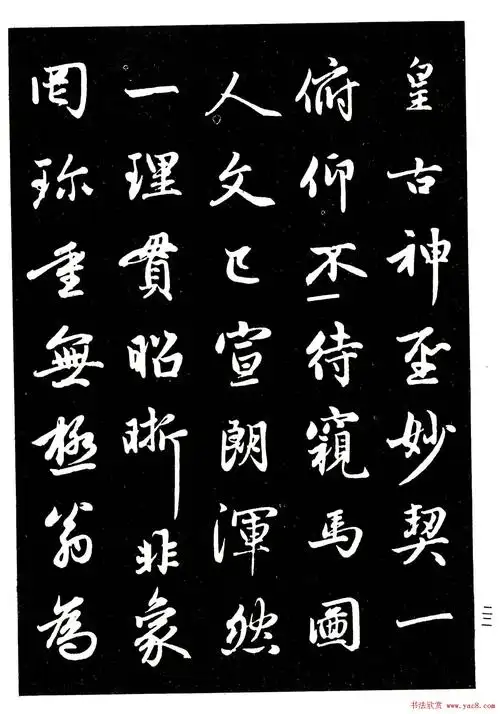 皇古神聖妙契一
俯仰不待窺馬圖
人文已宣朗渾然
一理貫昭晰非象
罔珍重無極翁為
二二
书法欣赏 www.yac8.com